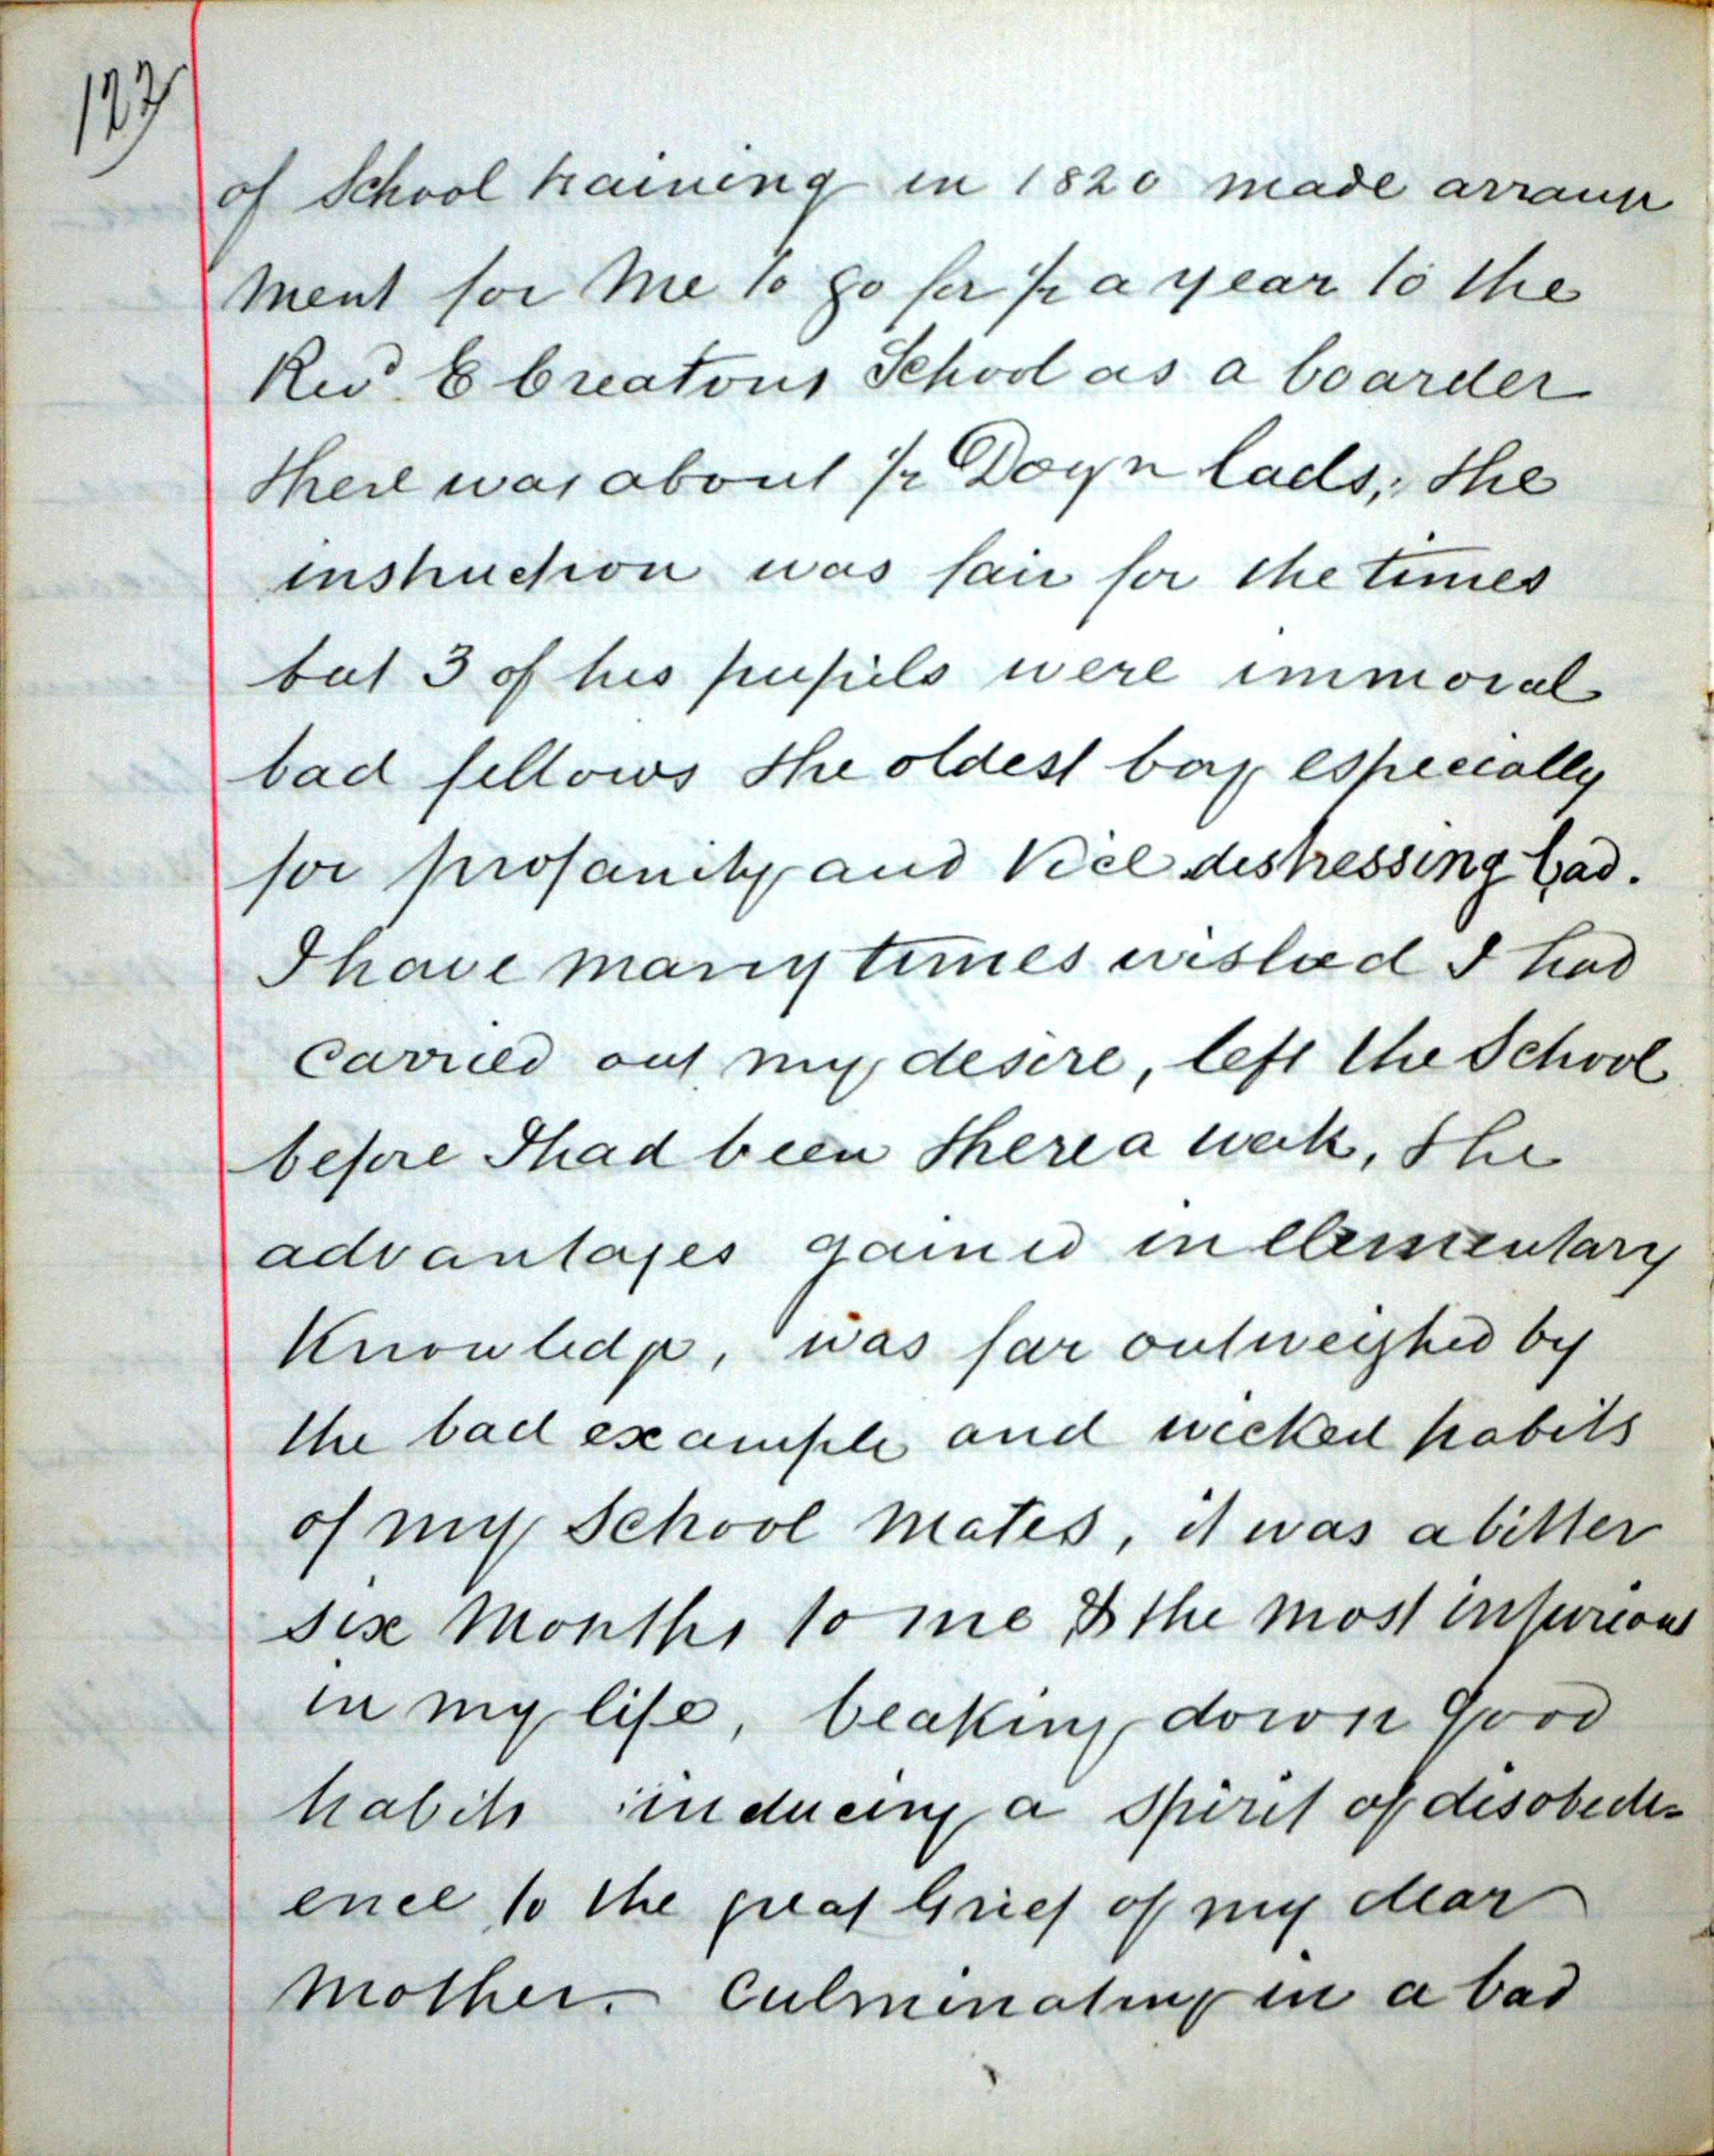 127
of School training in 1820 made arrange
ment for me to go for ½ a year to the
Revd E Creatons School as a boarder
there was about ½ Dozn lads,; the
instruction was fair for the times
but 3 of his pupils were immoral
bad fellows the oldest boy especially
for profanity and Vice distressing bad.
I have many times wished I had
carried out my desire, left the School
before I had been there a week, the
advantages gained in elementary
Knowledge, was far outweighed by
the bad example and wicked habits
of my School mates, it was a bitter
six months to me & the most injurious
in my life, beaking down good
habits inducing a spirit of disobedi=
ence to the great Grief of my dear
mother. Culminating in a bad